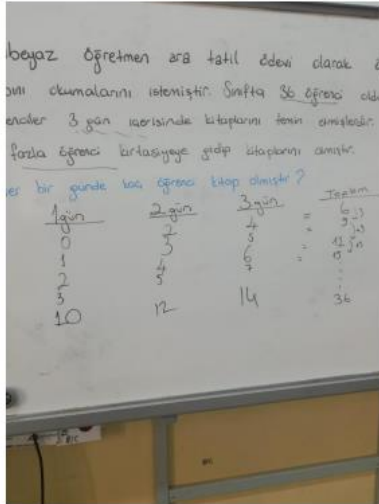 beyaz öğretmen ara tatil ödevi olarak
okumalarını istemiştir. Sınıfta 36 öğrenci
3 gün içerisinde kitaplarını temin etmişlerdir.
fazla öğrenci kırtasiyeye gidip kitaplarını almıştır.
er bir günde kaç öğrenci kitap almıştır?
1 gün 2 gün 3 gün Toplam
0 2 4 = 6
1 3 5 = 9
2 4 6 = 12
3 5 7 = 15
10 12 14 36